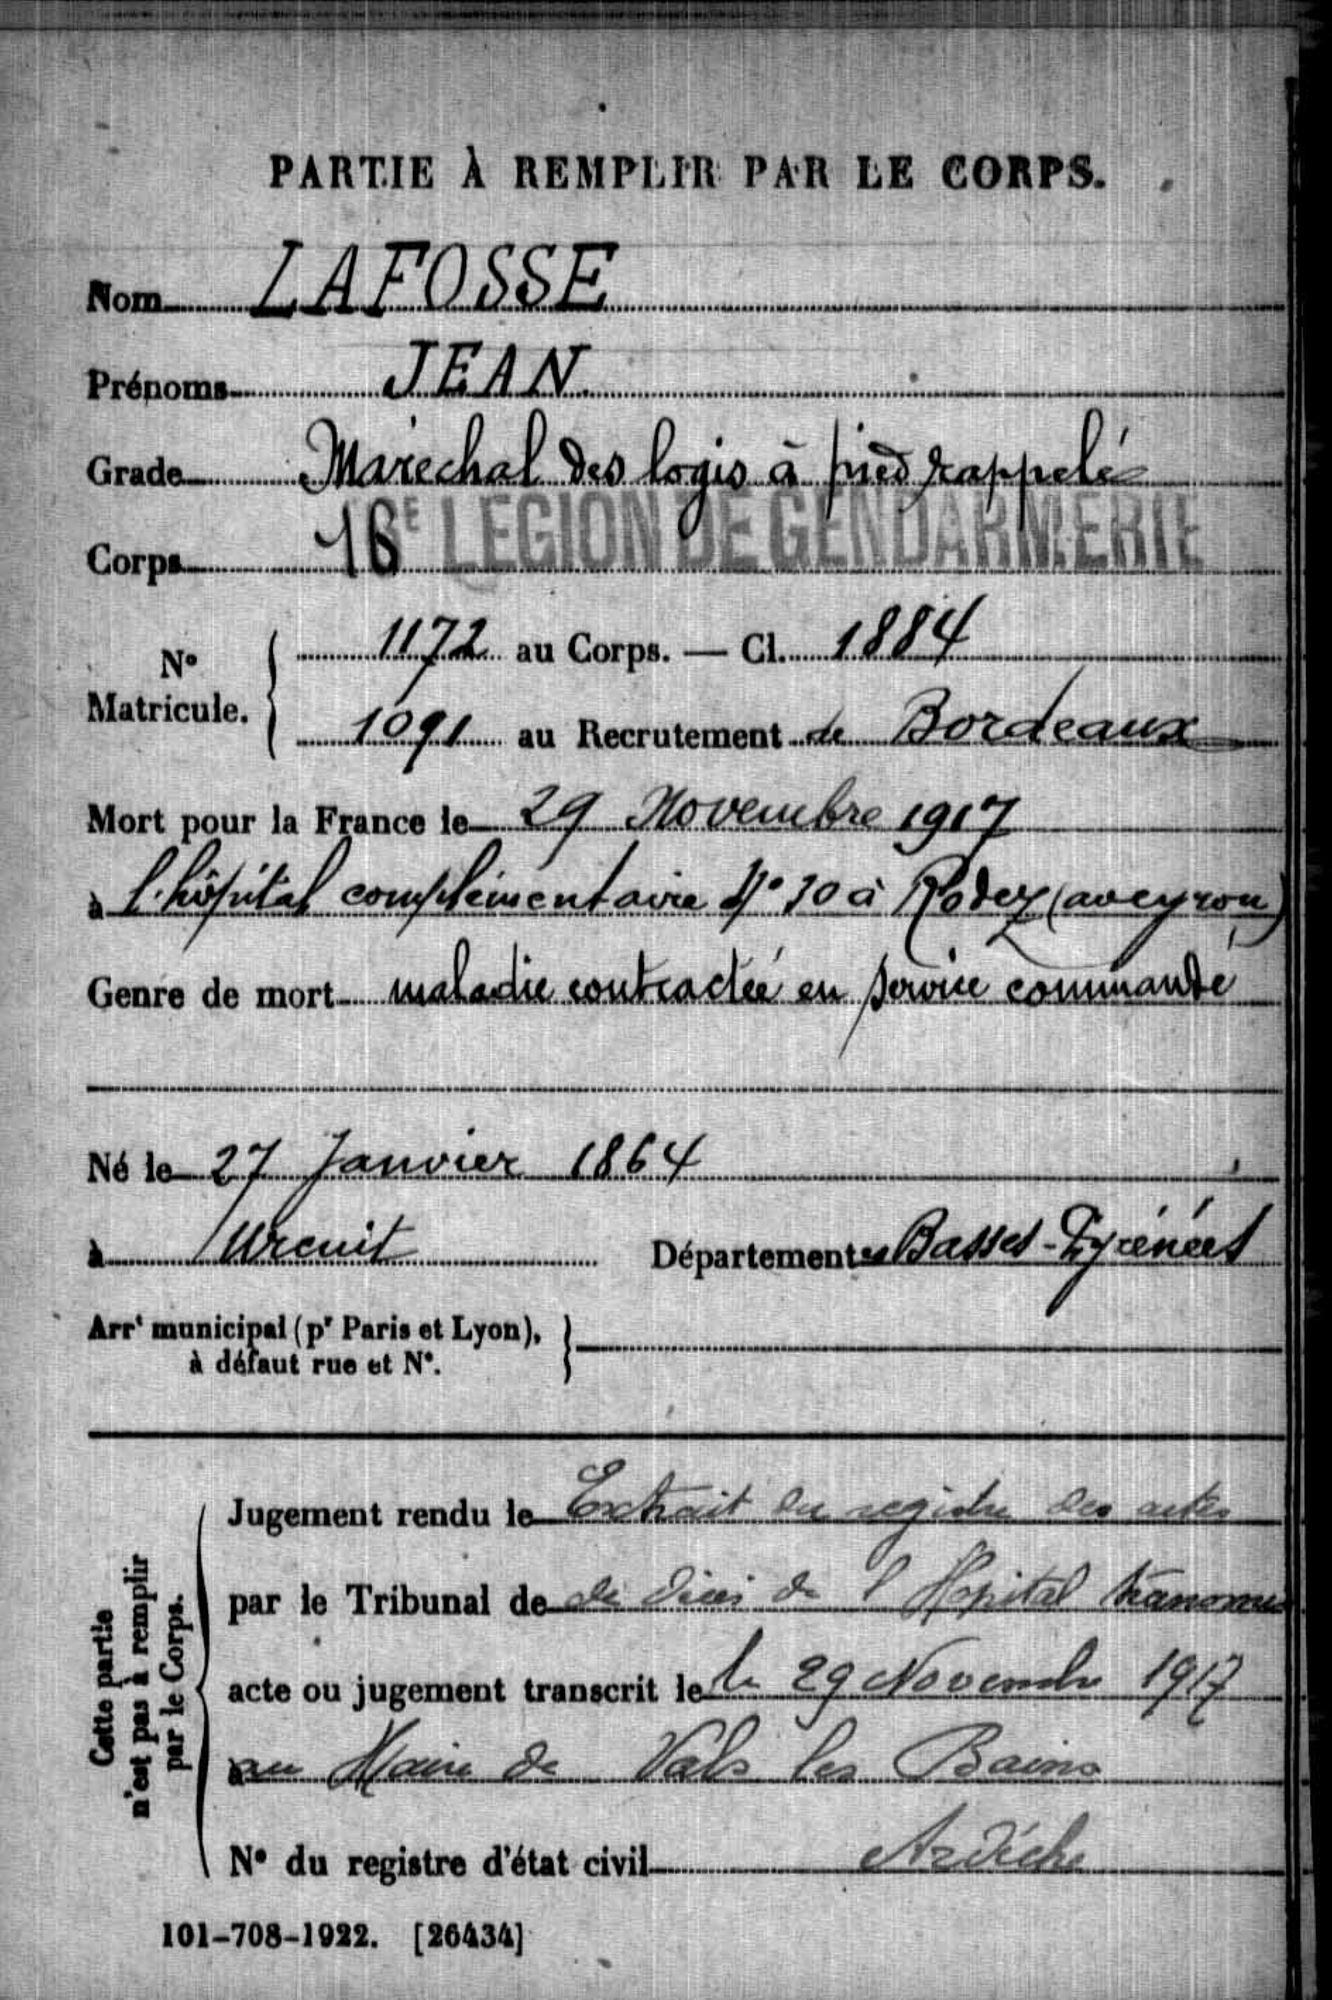 PARTIE À REMPLIR PAR LE CORPS.
Nom LAFOSSE
Prénoms JEAN
Grade Maréchal des logis à pied rappelé
Corps 16E LEGION DE GENDARMERIE
N° Matricule. 1172 au Corps. — Cl. 1884
1091 au Recrutement de Bordeaux
Mort pour la France le 29 Novembre 1917
à l'hôpital complémentaire N° 30 à Rodez (aveyron)
Genre de mort maladie contractée en service commandé
Né le 27 Janvier 1864
à Urcuit Département Basses-Pyrénées
Arrt municipal (pr Paris et Lyon),
à défaut rue et N°.
Cette partie
n'est pas à remplir
par le Corps.
Jugement rendu le Extrait du registre des actes
par le Tribunal de de décès de l'Hopital transmis
acte ou jugement transcrit le le 29 Novembre 1917
au Maire de Vals les Bains
N° du registre d'état civil Ardèche
101-708-1922. [26434]